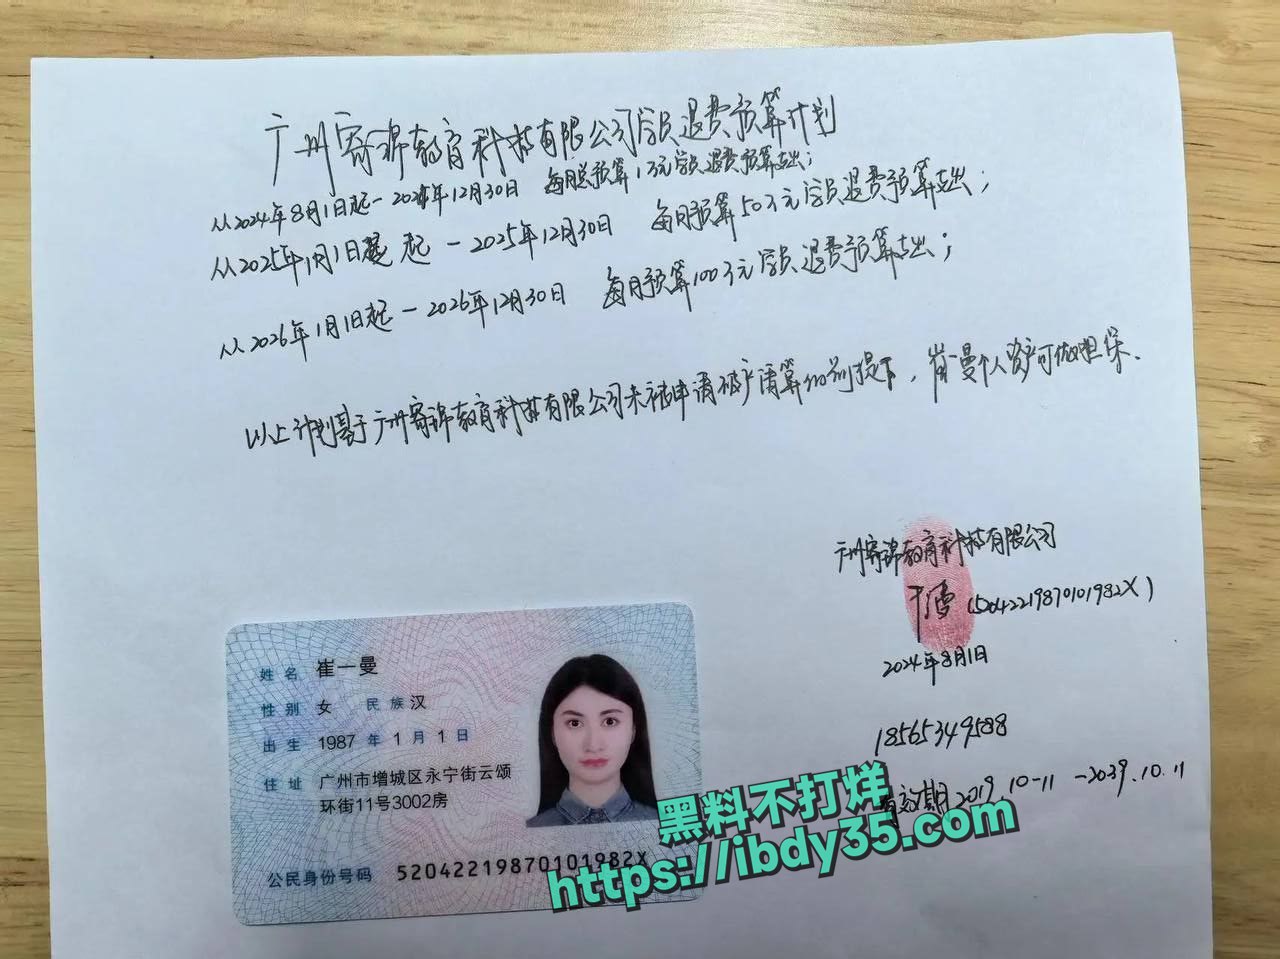 广州寄锦教育科技有限公司学员退费预算计划
从2024年8月1日起-2024年12月30日 每月总预算1万元学员退费预算支出;
从2025年1月1日起 起-2025年12月30日 每月预算50万元学员退费预算支出;
从2026年1月1日起-2026年12月30日 每月预算100万元学员退费预算支出;
以上计划基于广州寄锦教育科技有限公司未被申请破产清算的前提下,崔一曼个人资产可做担保.
广州寄锦教育科技有限公司
(52042219870101982X)
2024年8月1日
18565349588
有效期2019.10-11-2039.10.11
姓名 崔一曼
性别 女 民族 汉
出生 1987年1月1日
住址 广州市增城区永宁街云颂
环街11号3002房
公民身份号码 52042219870101982X
黑料不打烊
https://ibdy35.com